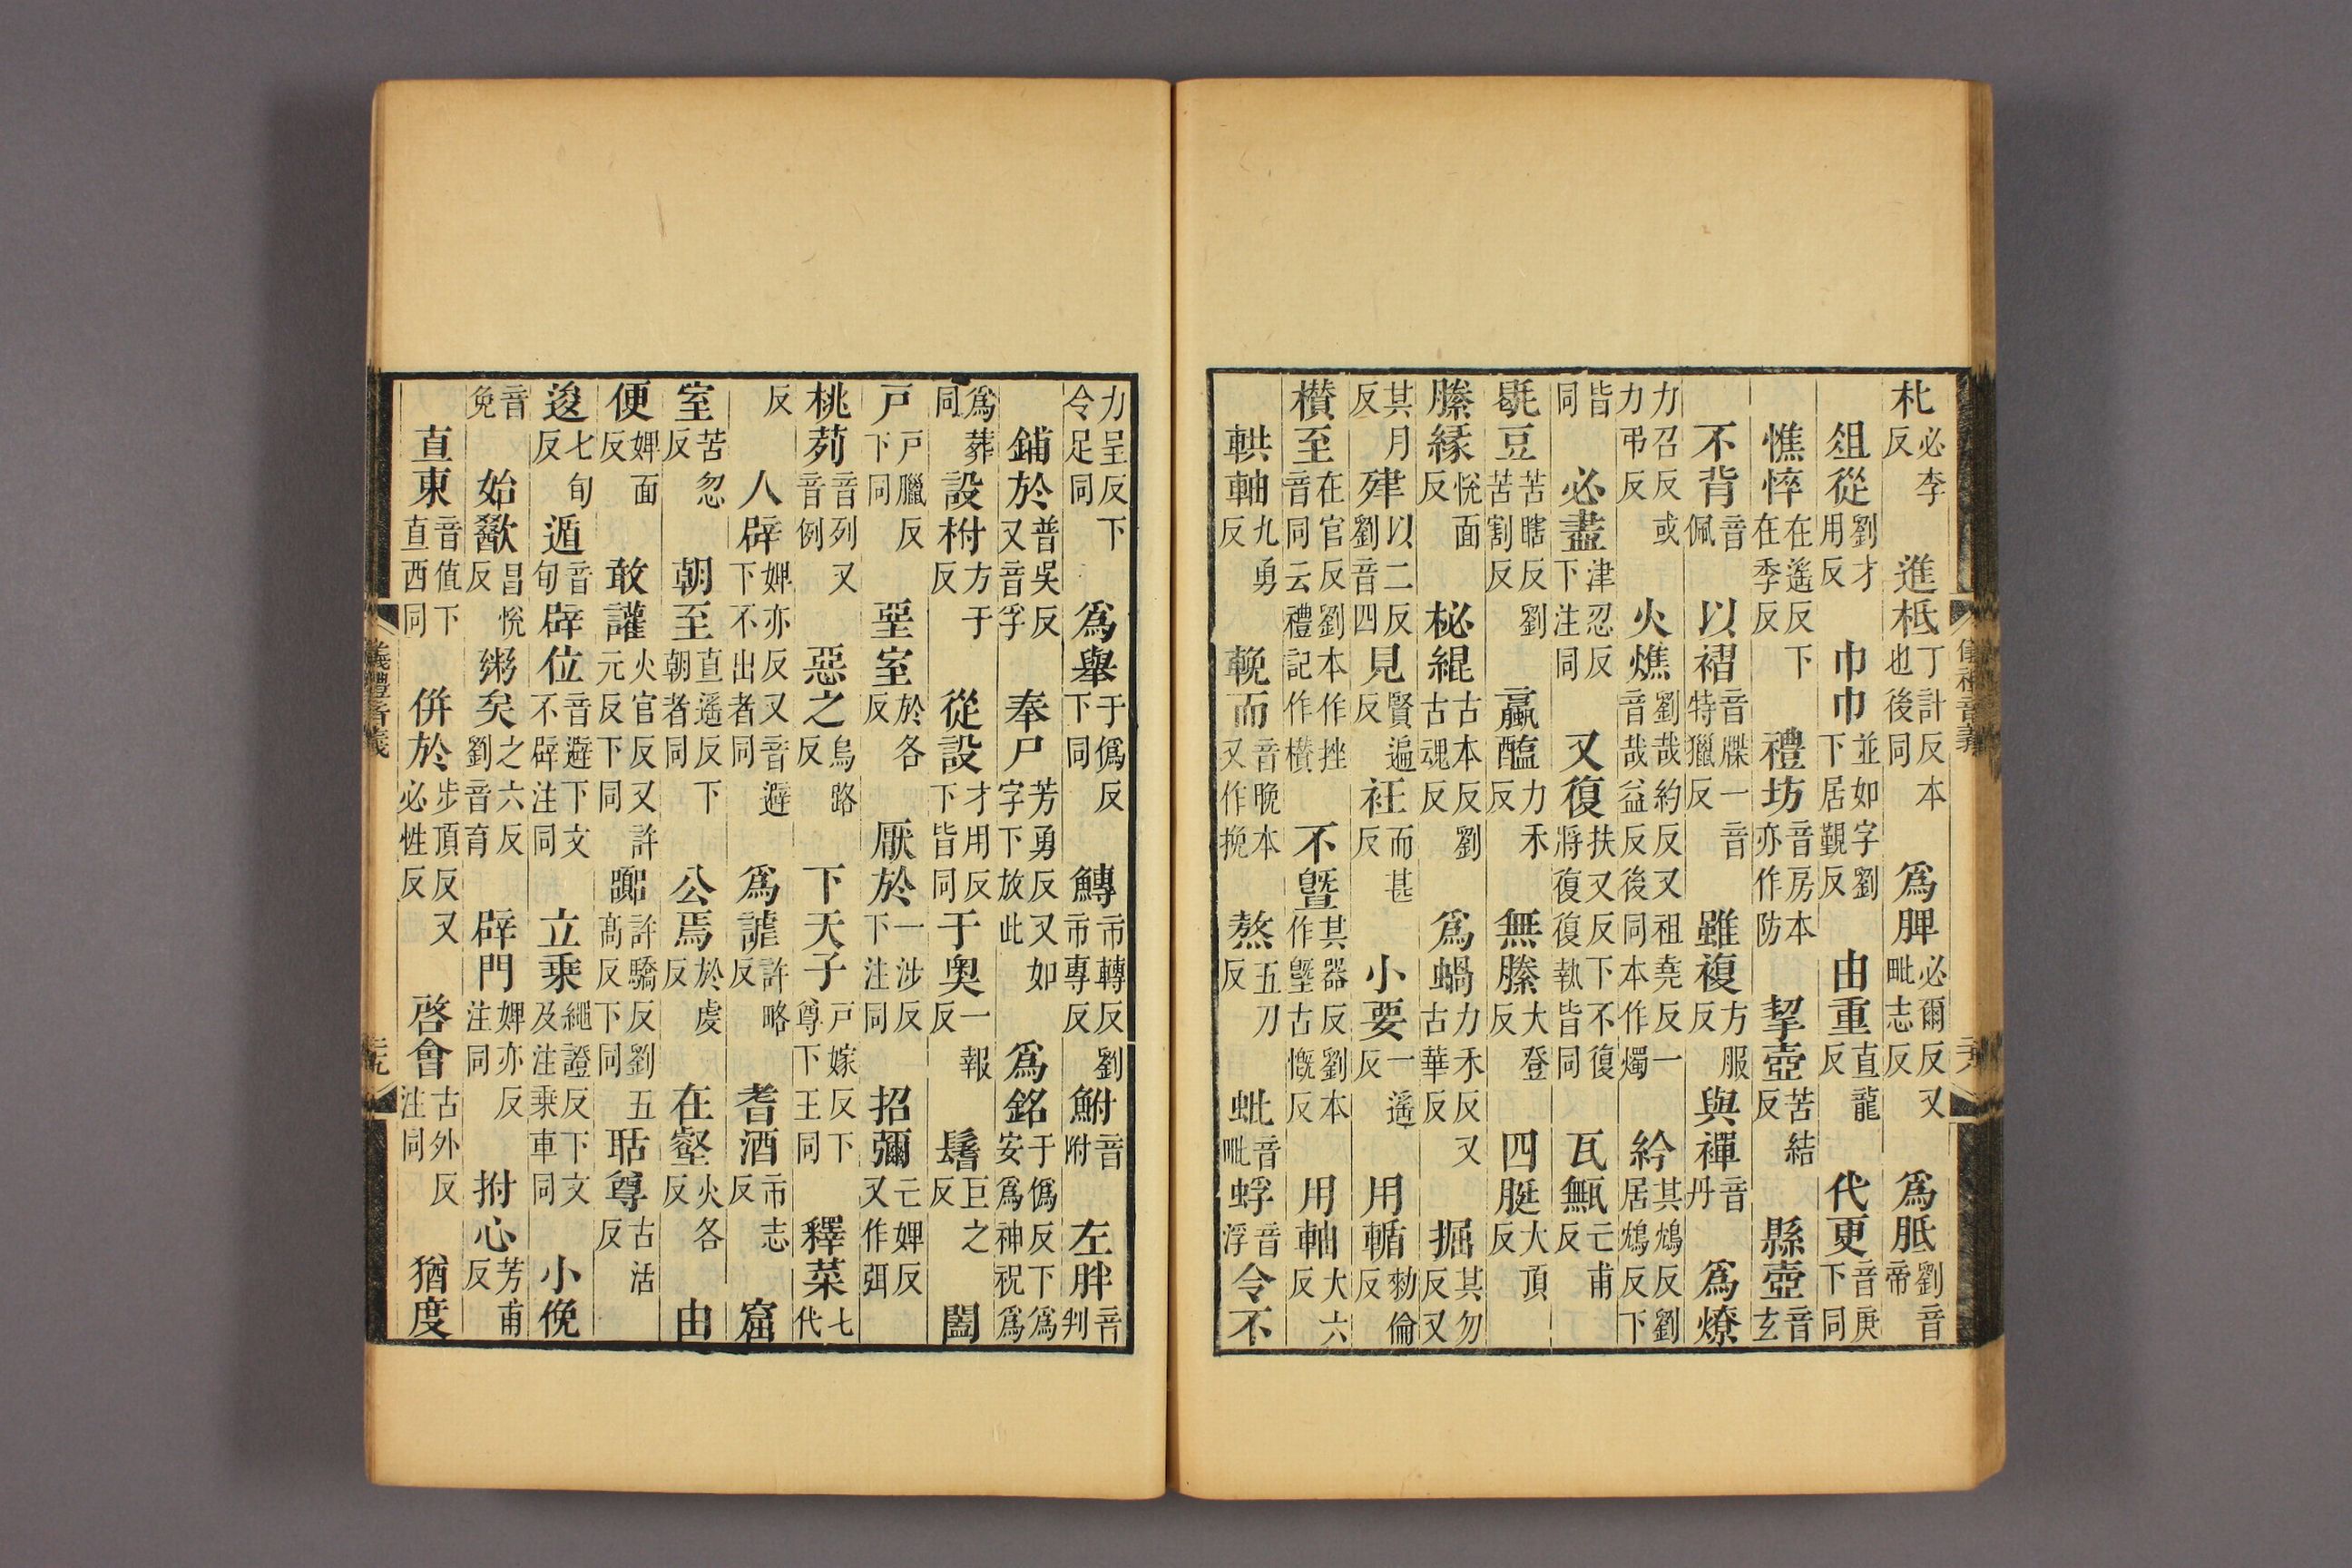 朼必李反 進柢丁計反本也後同 爲脾必爾反又毗志反 爲胝劉音帝
俎從劉才用反 巾巾並如字劉下居覲反 由重直龍反 代更音庚下同
憔悴在遙反下在季反 禮坊音房本亦作防 挈壺苦結反 縣壺音玄
不背音佩 以褶音牒一音特獵反 雖複方服反 與襌音丹 爲燎
力召反或力弔反 火燋劉哉約反又祖堯反一音哉益反後同本作燭 紟其鴆反劉居鴆反下
皆同 必盡津忍反下注同 又復扶又反下不復將復復執皆同 瓦甒亡甫反
毼豆苦瞎反劉苦割反 蠃醢力禾反 無縢大登反 四脡大頂反
縢緣悅面反 柲緄古本反劉古魂反 爲蝸力禾反又古華反 掘其勿反又
其月反 殔以二反劉音四 見賢遍反 衽而甚反 小要一遙反 用輴勑倫反
欑至在官反劉本作挫音同云禮記作欑 不曁其器反劉本作墍古慨反 用軸大六反
輁軸九勇反 輓而音晚本又作挽 熬五刀反 蚍音毗 蜉音浮 令不
儀禮音義
力呈反下令足同 爲舉于僞反下同 鱄市轉反劉市專反 鮒音附 左胖音判
鋪於普吳反又音孚 奉尸芳勇反又如字下放此 爲銘于僞反下爲安爲神祝爲
爲葬同 設柎方于反 從設才用反下皆同 于奧一報反 鬐巨之反 闔
戸戸臘反下同 堊室於各反 厭於一涉反下注同 招彌亡婢反又作弭
桃茢音列又音例 惡之烏路反 下天子戸嫁反下尊下王同 釋菜七代
反 人辟婢亦反又音避下不出者同 爲謔許略反 耆酒市志反 窟
室苦忽反 朝至直遙反下朝者同 公焉於虔反 在壑火各反 由
便婢面反 敢讙火官反又許元反下同 許驕反劉五高反下同 聒尊古活反
逡七旬反 遁音旬 辟位音避下文不辟注同 立乘繩證反下文及注乘車同 小俛
音免 始歠昌悅反 粥矣之六反劉音育 辟門婢亦反注同 拊心芳甫反
直東音值下直西同 併於步頂反又必性反 啓會古外反注同 猶度
儀禮音義